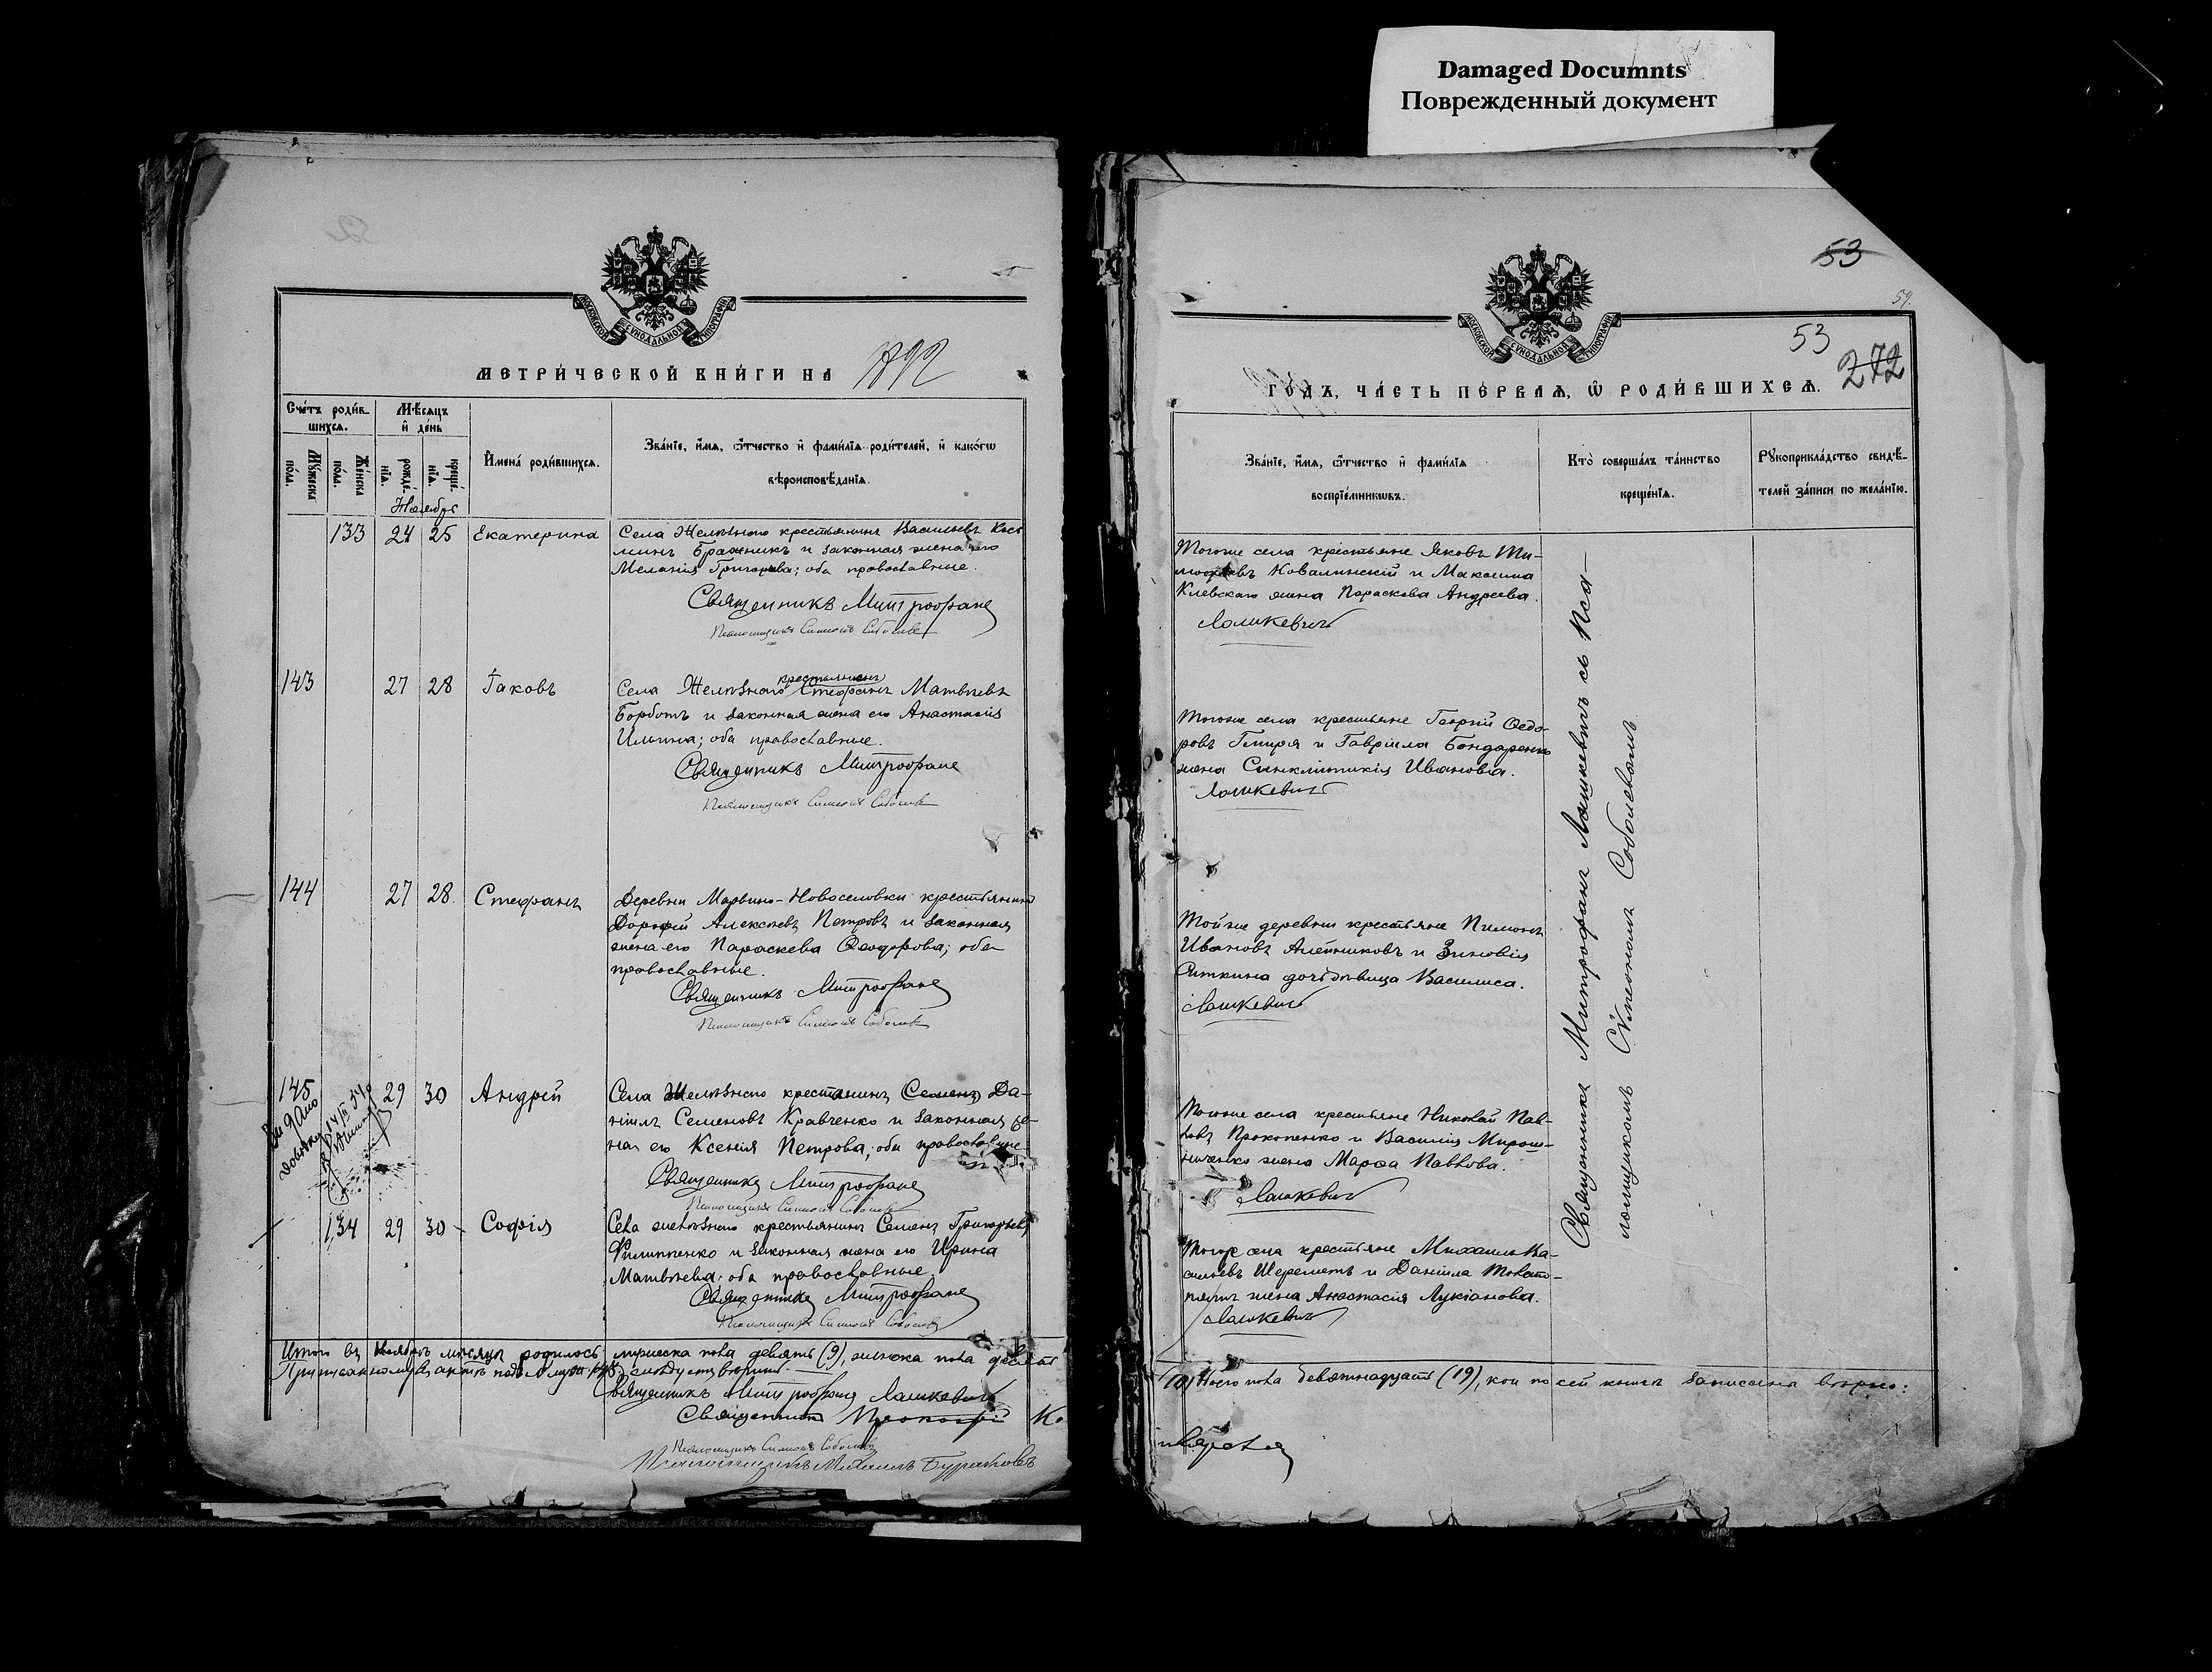 Damaged Documnts
Поврежденный документ
МОСКОВСКОЙ СУНОДАЛЬНОЙ ТИПОГРАФІИ
МЕТРИ́ЧЕСКОЙ КНИ́ГИ НА 1892
Сче́тъ роди́в-
шихсѧ.
Мѣ́сѧцъ
и҆ де́нь
Мꙋ́жеска
по́ла.
Же́нска
по́ла.
рожде́-
нїѧ.
креще́-
нїѧ.
И҆мена̀ роди́вшихсѧ.
Зва́нїе, и҆́мѧ, ѻ҆́тчество и҆ фами́лїѧ роди́телей, и҆ како́гѡ
вѣроисповѣ́данїѧ.
Ноябрь
133 24 25 Екатерина
Села Желѣзного крестьянинъ Васильевъ Кось
минъ Бражникъ и законная жена его
Меланія Григорьева; оба православные.
Священникъ Митрофанъ
Псаломщикъ Симеонъ Соболевъ
143 27 28 Іаковъ
крестьянинъ
Села Желѣзного Стефанъ Матвѣевъ
Борботъ и законная жена его Анастасія
Ильина; оба православные.
Священникъ Митрофанъ
Псаломщикъ Симеонъ Соболевъ
144 27 28 Стефанъ
Деревни Марьино-Новоселовки крестьянинъ
Дорофей Алексѣевъ Петровъ и законная
жена его Параскева Ѳеодорова; оба
православные.
Священникъ Митрофанъ
Псаломщикъ Симеонъ Соболевъ
145 29 30 Андрей
Села Желѣзного крестьянинъ Семенъ Да-
ніилъ Семеновъ Кравченко и законная же-
на его Ксенія Петрова; оба православные.
Священникъ Митрофанъ
Псаломщикъ Симеонъ Соболевъ
134 29 30 Софія
Села Желѣзного крестьянинъ Семенъ Григорьевъ
Филиппенко и законная жена его Ирина
Матвѣева; оба православные.
Священникъ Митрофанъ
Псаломщикъ Симеонъ Соболевъ
Итого въ Ноябрѣ мѣсяцѣ родилось мужеска пола девять (9), женска пола десять
Священникъ Митрофанъ Лашкевичъ
Священникъ
Псаломщикъ Симеонъ Соболевъ
Псаломщикъ Михаилъ
53
54.
53
272
МОСКОВСКОЙ СУНОДАЛЬНОЙ ТИПОГРАФІИ
ГО́ДЪ, ЧА́СТЬ ПЕ́РВАѦ, Ѽ РОДИ́ВШИХСѦ.
Зва́нїе, и҆́мѧ, ѻ҆́тчество и҆ фами́лїѧ
воспрїе́мникѡвъ.
Кто̀ соверша́лъ та́инство
креще́нїѧ.
Рꙋкоприкла́дство свидѣ́-
телей за́писи по жела́нїю.
Тогоже села крестьяне Яковъ Ти-
мофѣевъ Ковалинскій и Максима
Клевскаго жена Параскева Андреева.
Лашкевичъ
Тогоже села крестьяне Георгій Ѳедо-
ровъ Гмиря и Гавріила Бондаренко
жена Синклитикія Иванова.
Лашкевичъ
Тойже деревни крестьяне Пименъ
Ивановъ Алейниковъ и Зиновія
Ситкина дочь дѣвица Василиса.
Лашкевичъ
Тогоже села крестьяне Николай Пав-
ловъ Прокопенко и Василія Мирош-
ниченко жена Марѳа Павлова.
Лашкевичъ
Тогоже села крестьяне Михаилъ Ва-
сильевъ Шереметъ и Даніила Толсто-
пятъ жена Анастасія Лукіанова.
Лашкевичъ
Священникъ Митрофанъ Лашкевичъ съ Пса-
ломщикомъ Сѵмеономъ Соболевымъ
(10), девятнадцать (19), кои по сей книгѣ записаны вѣрно: